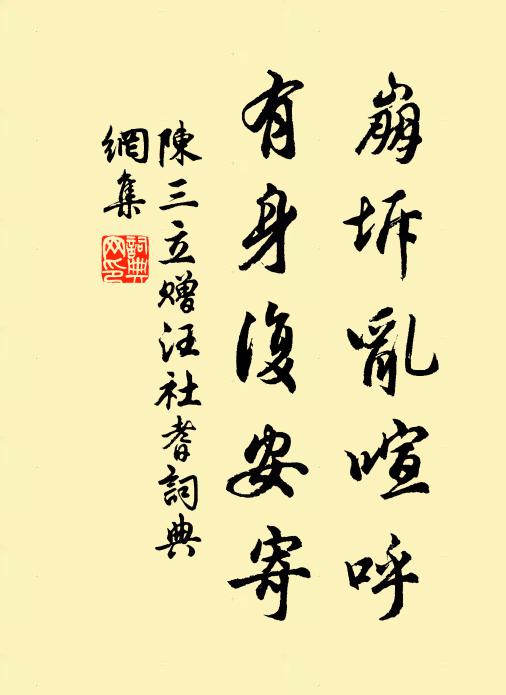 崩坼亂喧呼
有身復安寄
陳三立贈汪社耆詞典
網集
詞典
网印